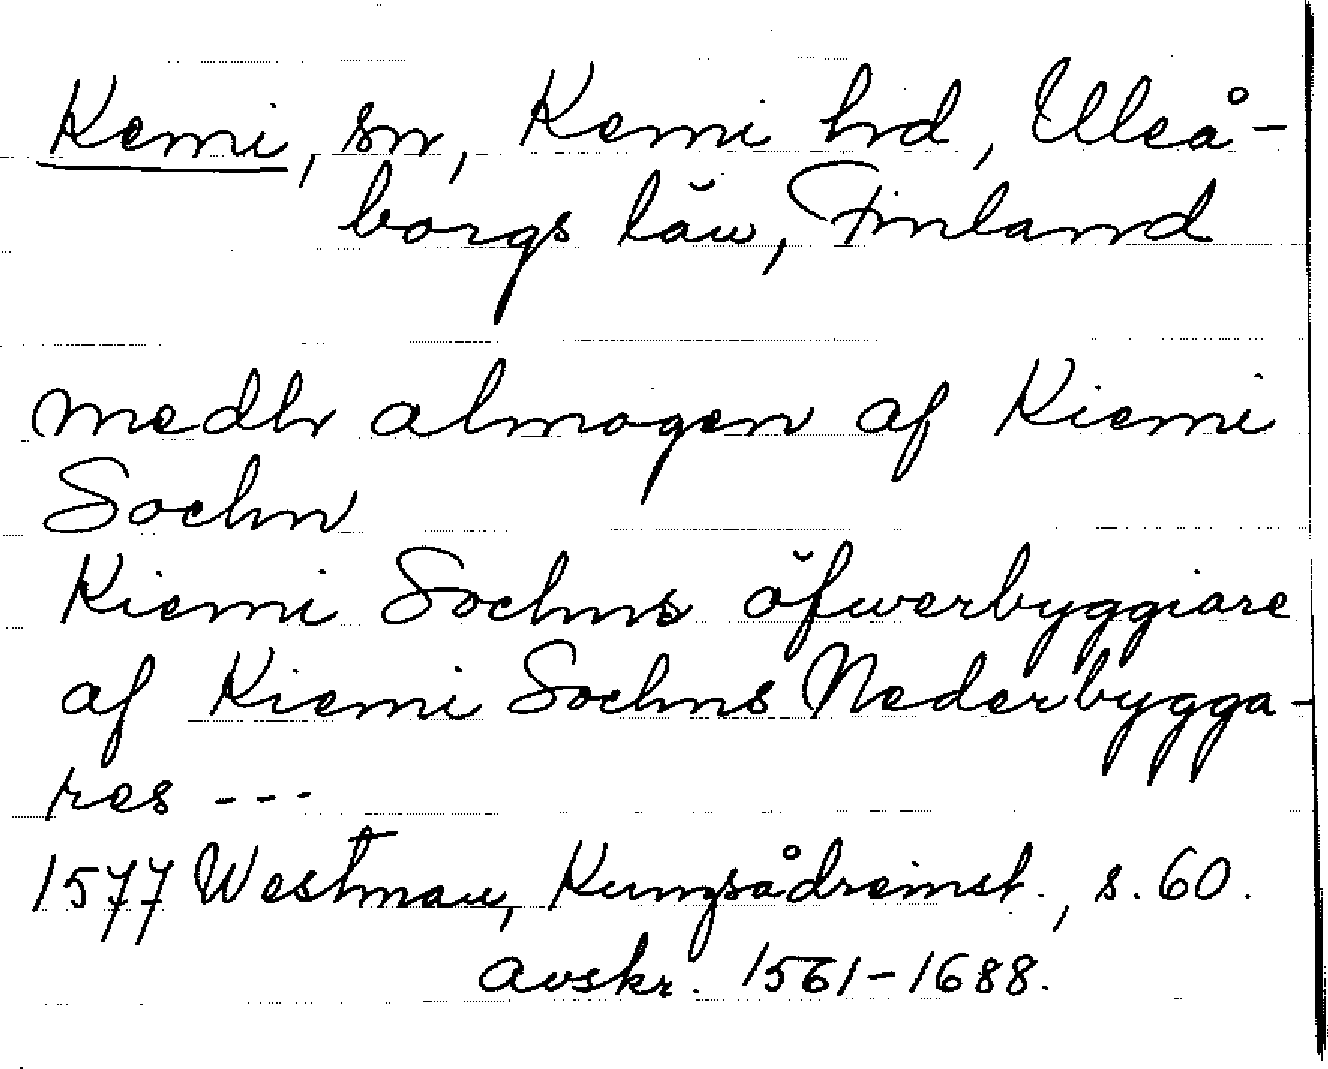 Kemi, sn, Kemi hd, Uleå-
borgs län, Finland
medh almogen af Kiemi
Sochn
Kiemi Sochns öfwerbyggiare
af Kiemi Sochns Nederbygga-
res ---
1577 Westman, Kungsådreinst., s. 60.
avskr. 1561-1688.